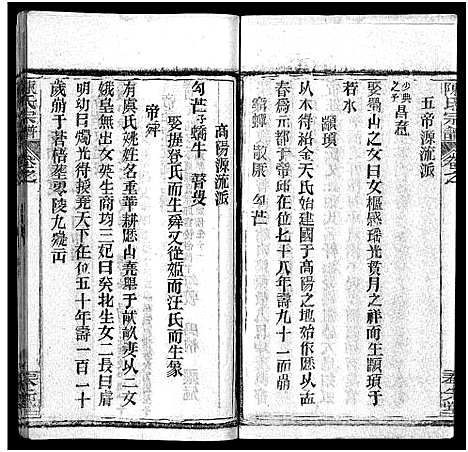 陳氏宗譜
五帝源流派
少典之子 昌意
娶蜀山之女曰女樞感瑤光貫月之祥而生顓頊于
若水
顓頊
以木得紹金天氏始建國于高陽之地始作厯以孟
春為元在位七十八年壽九十一而崩
蟜 敬康 句芒
高陽源流派
句芒之子 蟜牛 瞽叟
娶握登氏而生舜又從姬而汪氏而生象
帝舜
有虞氏姚姓名重華耕厯山堯舉于畎畝妻以二女
娥皇無出女英生商均三妃曰癸北生女二長曰眉
明幼曰燭光得接堯天下在位五十年壽一百一十
歲崩于蒼梧塟零陵九嶷山
陳氏宗譜